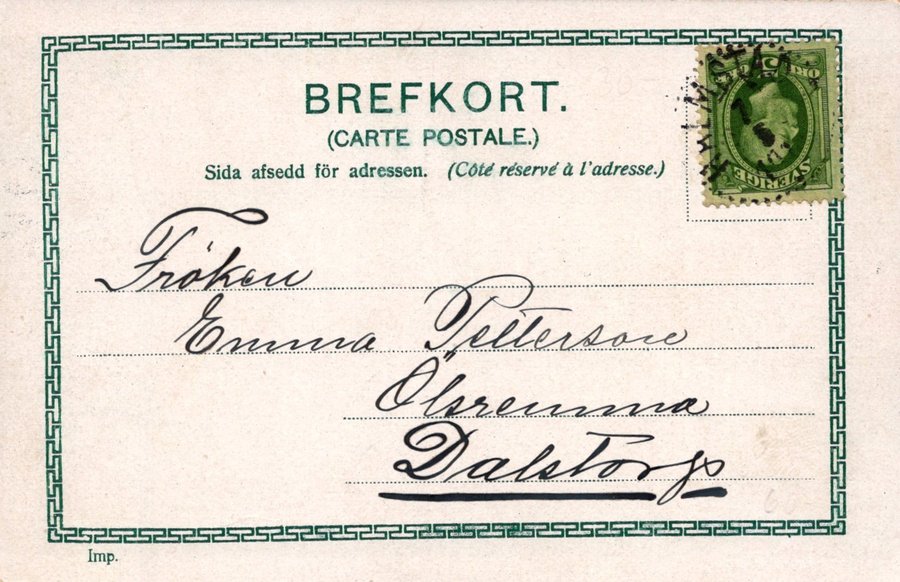 BREFKORT.
(CARTE POSTALE.)
Sida afsedd för adressen. (Côté réservé à l'adresse.)
SVERIGE
Fröken
Emma Petterson
Ölsremma
Dalstorp
Imp.